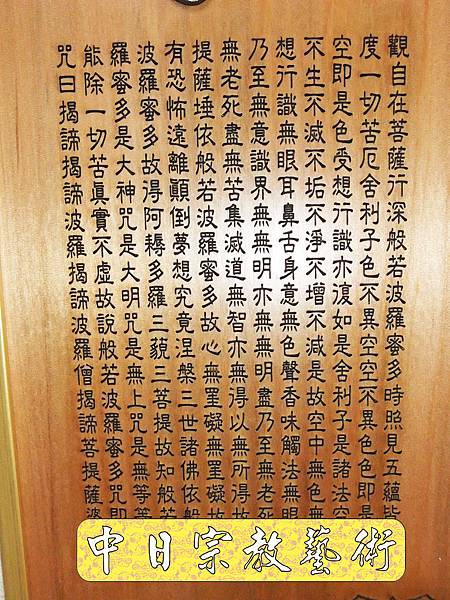 觀自在菩薩行深般若波羅蜜多時照見五蘊皆
度一切苦厄舍利子色不異空空不異色色即是
空即是色受想行識亦復如是舍利子是諸法空
不生不滅不垢不淨不增不減是故空中無色無
想行識無眼耳鼻舌身意無色聲香味觸法無眼
乃至無意識界無無明亦無無明盡乃至無老死
無老死盡無苦集滅道無智亦無得以無所得故
提薩埵依般若波羅蜜多故心無罣礙無罣礙故
有恐怖遠離顚倒夢想究竟涅槃三世諸佛依般
波羅蜜多故得阿耨多羅三藐三菩提故知般若
羅蜜多是大神咒是大明咒是無上咒是無等等
能除一切苦眞實不虛故說般若波羅蜜多咒即
咒曰揭諦揭諦波羅揭諦波羅僧揭諦菩提薩婆
中日宗教藝術